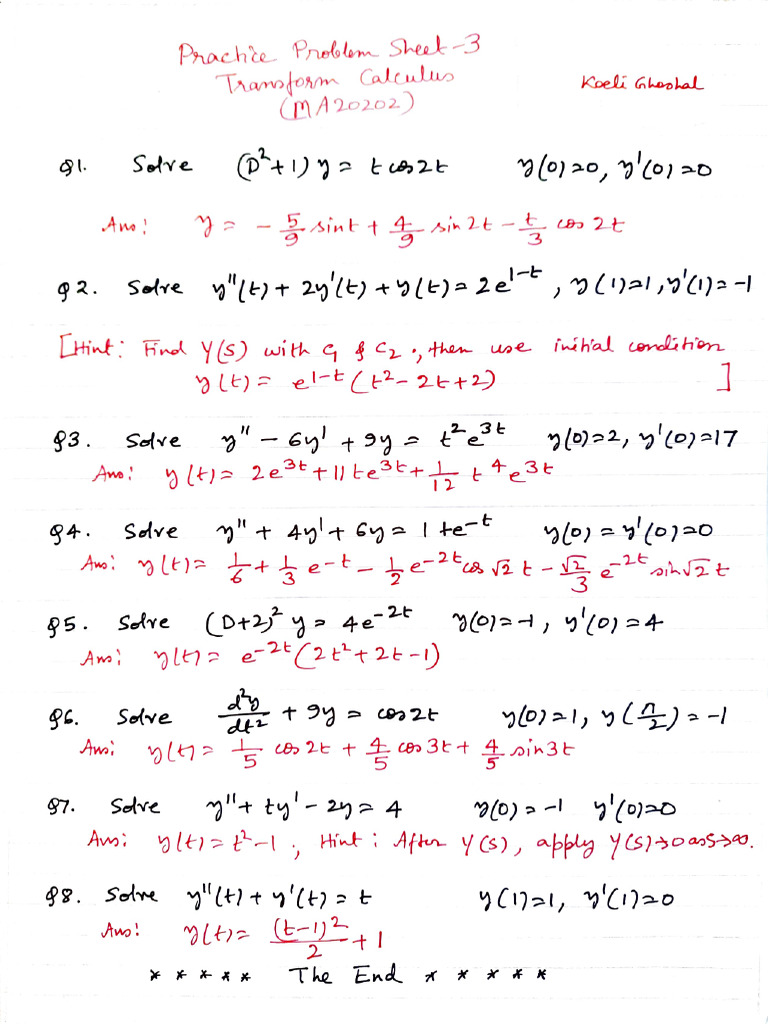 Practice Problem Sheet-3
Transform Calculus
(MA20202)
Koeli Ghoshal
Q1. Solve (D²+1) y = t cos2t y(0)=0, y'(0)=0
Ans: y = - 5/9 sint + 4/9 sin 2t - t/3 cos 2t
Q2. Solve y"(t) + 2y'(t) + y(t) = 2e^{1-t}, y(1)=1, y'(1)=-1
[Hint: Find Y(s) with C₁ & C₂., then use initial condition
y(t) = e^{1-t} (t²-2t+2) ]
Q3. Solve y" - 6y' + 9y = t²e^{3t} y(0)=2, y'(0)=17
Ans: y(t) = 2e^{3t} + 11te^{3t} + 1/12 t⁴e^{3t}
Q4. Solve y" + 4y' + 6y = 1+e^{-t} y(0) = y'(0)=0
Ans: y(t) = 1/6 + 1/3 e^{-t} - 1/2 e^{-2t} cos √2 t - √2/3 e^{-2t} sin √2 t
Q5. Solve (D+2)² y = 4e^{-2t} y(0)=-1, y'(0)=4
Ans: y(t) = e^{-2t} (2t²+2t-1)
Q6. Solve d²y/dt² + 9y = cos2t y(0)=1, y(π/2) = -1
Ans: y(t) = 1/5 cos 2t + 4/5 cos 3t + 4/5 sin 3t
Q7. Solve y" + ty' - 2y = 4 y(0) = -1 y'(0)=0
Ans: y(t) = t²-1, Hint: After Y(s), apply Y(s)→0 as s→∞.
Q8. Solve y"(t) + y'(t) = t y(1)=1, y'(1)=0
Ans: y(t) = (t-1)²/2 + 1
* * * * * The End * * * * *